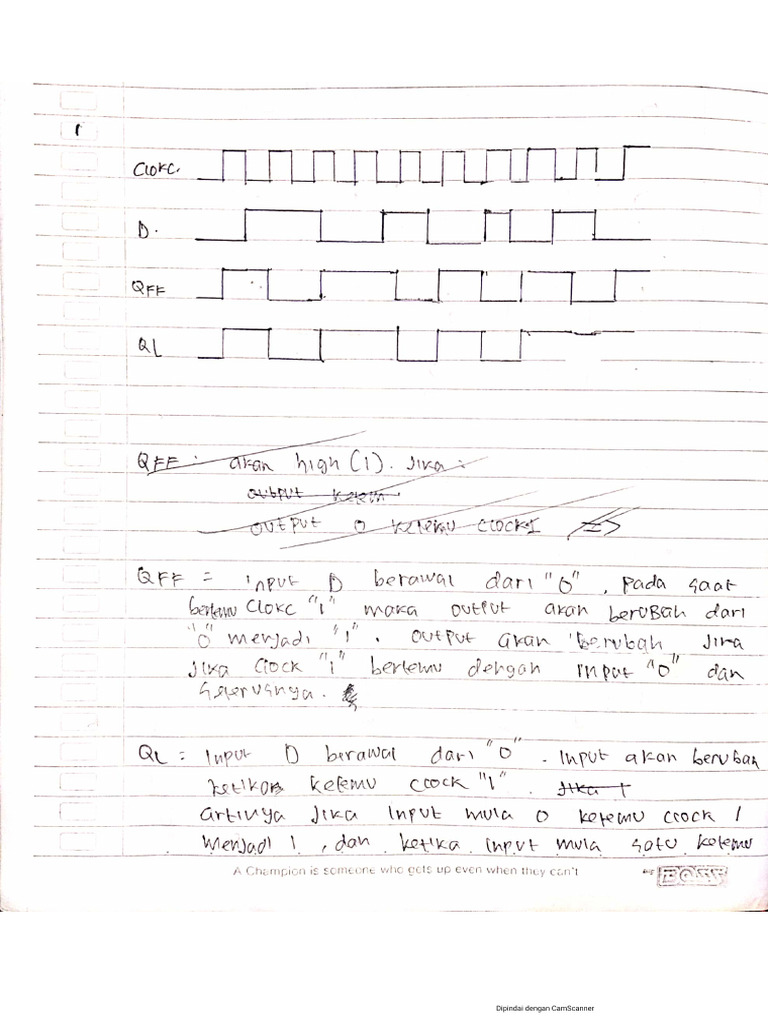 1
Clokc.
D.
QFF
QL
QFF : akan high (1). Jika :
output ketem
output 0 ketemu clock1 =>
QFF = input D berawal dari "0", pada saat
bertemu Clokc "1" maka output akan berubah dari
"0" menjadi "1". output akan berubah jika
jika clock "1" bertemu dengan input "0" dan
seterusnya.
QL = Input D berawal dari "0". Input akan berubah
ketika ketemu clock "1". Jika 1
artinya jika input mula 0 ketemu clock 1
menjadi 1, dan ketika input mula satu ketemu
A Champion is someone who gets up even when they can't
Dipindai dengan CamScanner